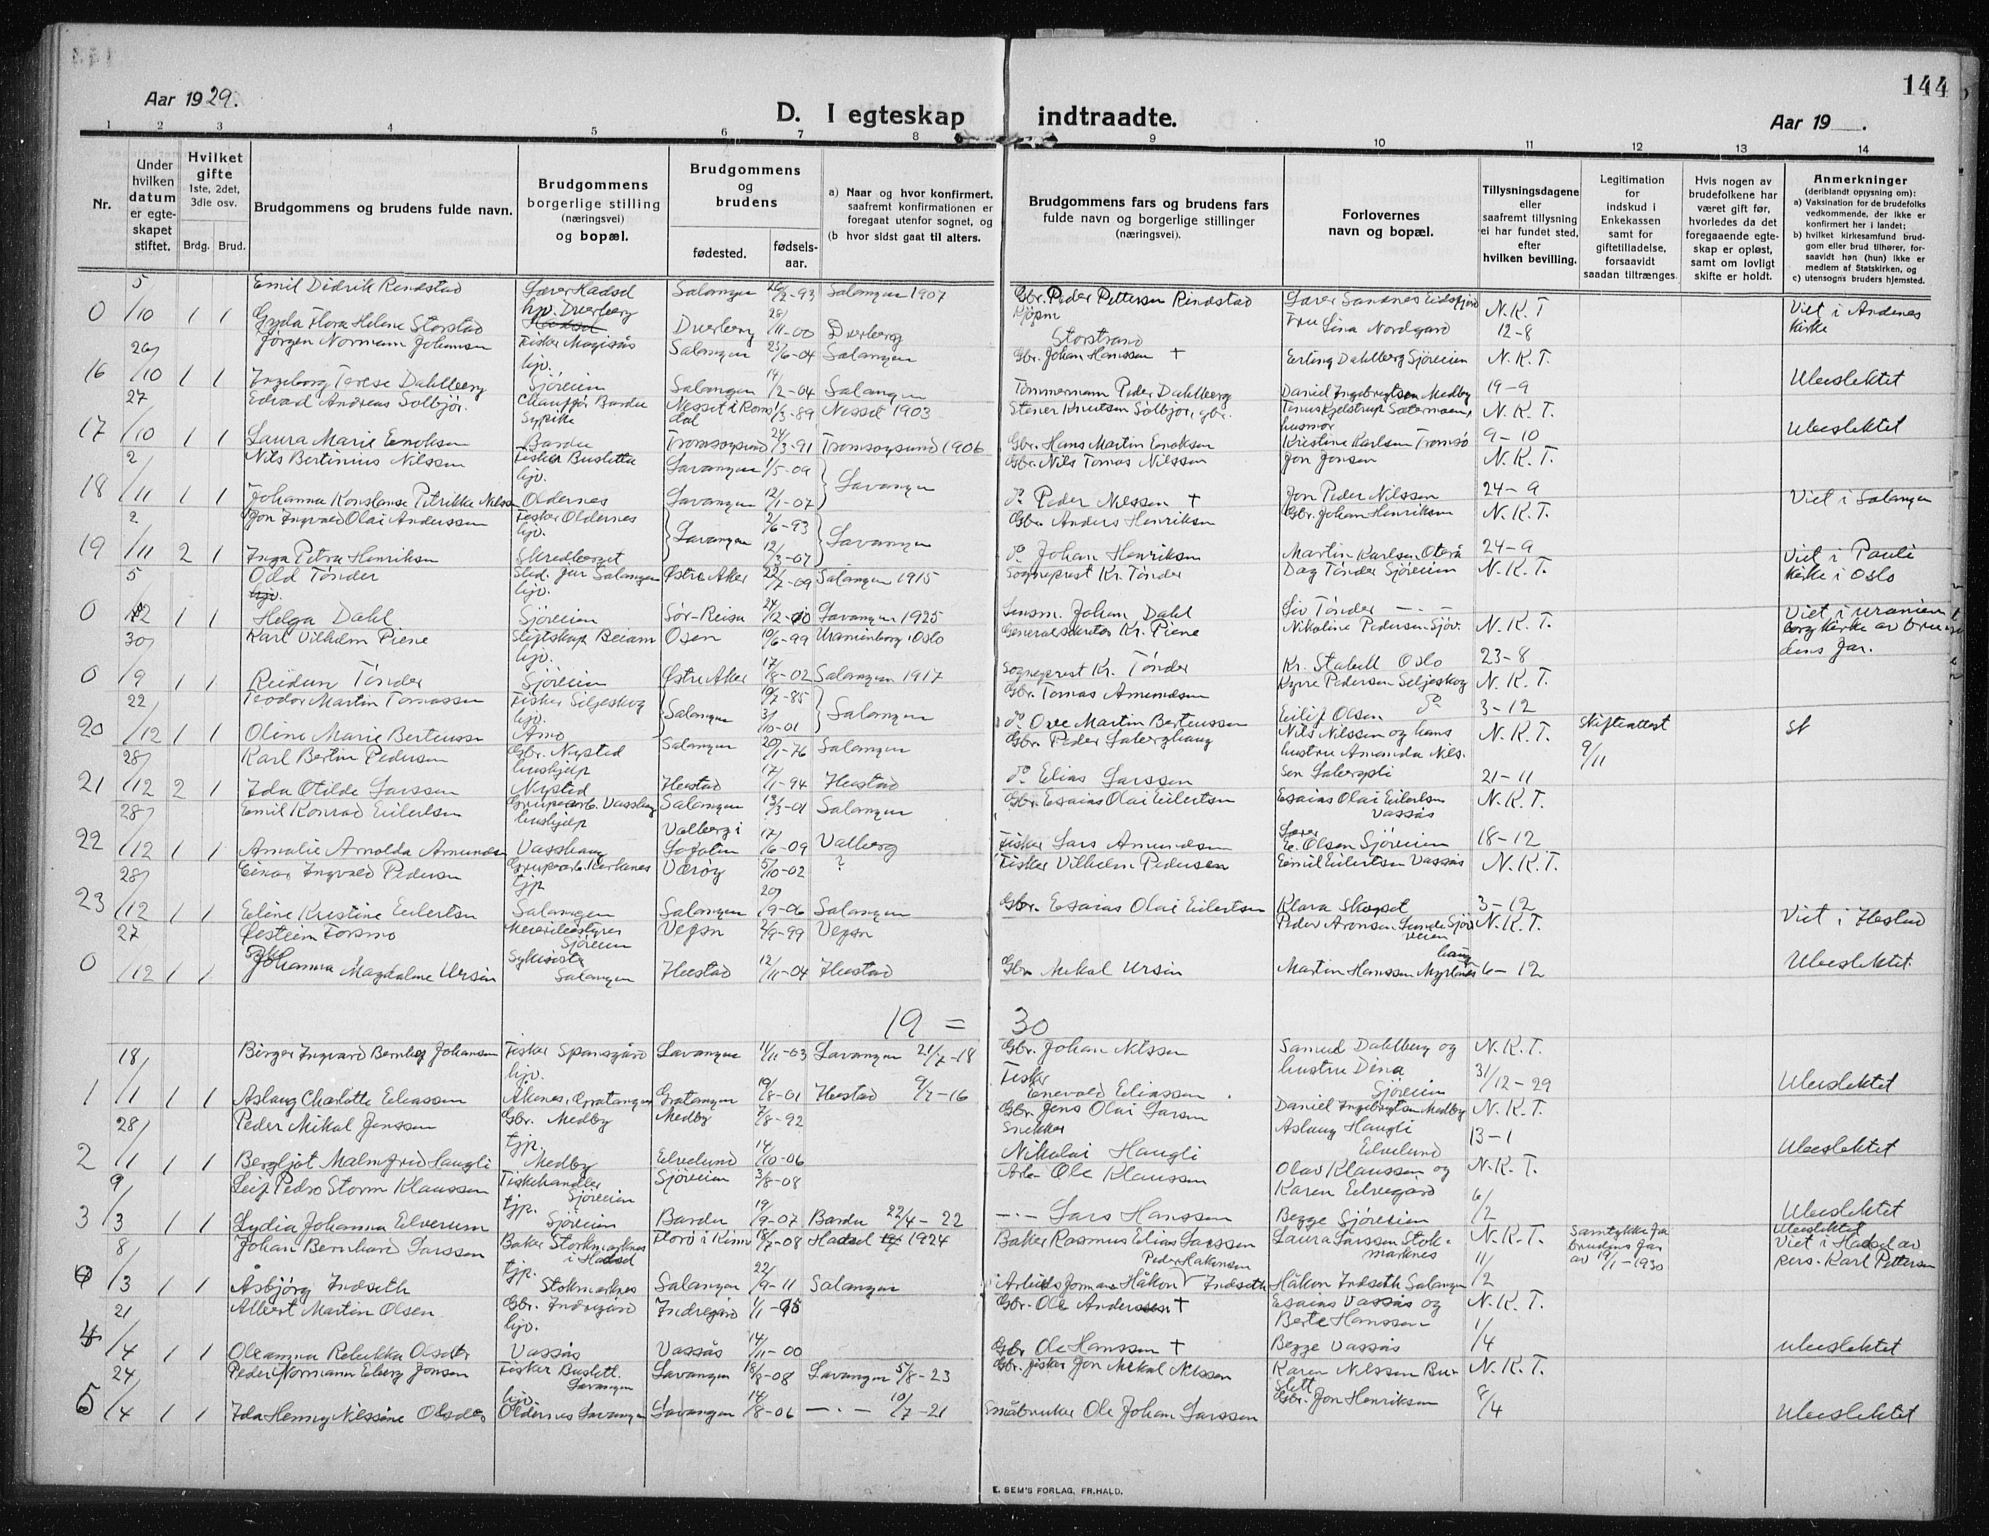 144
Aar 1929.
D. I egteskap indtraadte.
Aar 19 .
1 2 3 4 5 6 7 8 9 10 11 12 13 14
Nr.
Under hvilken datum er egteskapet stiftet.
Hvilket gifte 1ste, 2det, 3die osv.
Brdg. Brud.
Brudgommens og brudens fulde navn.
Brudgommens borgerlige stilling (næringsvei) og bopæl.
Brudgommens og brudens
fødested. fødselsaar.
a) Naar og hvor konfirmert, saafremt konfirmationen er foregaat utenfor sognet, og
(b hvor sidst gaat til alters.
Brudgommens fars og brudens fars fulde navn og borgerlige stillinger (næringsvei).
Forlovernes navn og bopæl.
Tillysningsdagene eller saafremt tillysning ei har fundet sted, efter hvilken bevilling.
Legitimation for indskud i Enkekassen samt for giftetilladelse, forsaavidt saadan tiltrænges.
Hvis nogen av brudefolkene har været gift før, hvorledes da det foregaaende egteskap er opløst, samt om lovligt skifte er holdt.
Anmerkninger (deriblandt opysning om):
a) Vaksination for de brudefolks vedkommende, der ikke er konfirmert her i landet;
b) hvilket kirkesamfund brudgom eller brud tilhører, forsaavidt han (hun) ikke er medlem af Statskirken, og
c) utensogns brudens hjemsted.
5 Emil Didrik Rendstad Lærer Hadsel Salangen 2-93 Salangen 1907 Gbr. Peder Pettersen Rindstad Lærer Sandnes Eidsfjord N.K.T
0 /10 1 1 Gyda Flora Helene Storstad hjv. Dverberg Dverberg 28/11-00 Dverberg Storstrand Fru Lina Nordgard 12-8 Viet i Andenes kirke
26/ Jørgen Normann Johansen Fisker Salangen 25/6-04 Salangen Gbr. Johan Hanssen + Erling Dahlberg Sjøveien N.K.T.
16 /10 1 1 Ingeborg Terese Dahlberg hjv. Sjøveien Salangen 14/2-04 Salangen Tømmermann Peder Dahlberg Daniel Ingebrigtsen Medby 19-9 Ubeslektet
27 Edvard Andreas Solbjør. Chauffør Bardu Nesset i Romsdal 1/3-89 Nesset 1903 Stener Knutsen Solbjør, gbr. N.K.T.
17 /10 1 1 Laura Marie Enoksen Sypike Bardu Tromsøysund 24/3-91 Tromsøysund 1906 Gbr. Hans Martin Enoksen husmor Kristine Karlsen Tromsø 9-10 Ubeslektet
2 Nils Bertinius Nilssen Fisker Buslette Lavangen 1/5-09 Lavangen Gbr. Nils Tomas Nilssen Jon Jonsen N.K.T.
18 /11 1 1 Johanna Konstanse Petrikke Nilssen hjv. Oldernes Lavangen 12/1-07 do Peder Nilssen + Jon Peder Nilssen 24-9 Viet i Salangen
2 Jon Ingvald Olai Anderssen Fisker Oldernes Lavangen 2/6-93 Lavangen Gbr. Anders Henriksen Gbr. Johan Henriksen N.K.T.
19 /11 2 1 Inga Petra Henriksen hjv. Skredberget 12/3-07 do Johan Henriksen Martin Karlsen Oterå 24-9
5 Odd Tønder Stud. jur Salangen Østre Aker 22/7-09 Salangen 1915 Sogneprest Kr. Tønder Dag Tønder Sjøveien N.K.T. Viet i Pauli kirke i Oslo
0 /12 1 1 Helga Dahl hjv. Sjøveien Sør-Reisa 24/2-10 Lavangen 1925 Lensm. Johan Dahl Liv Tønder -·-
30/ Karl Vilhelm Piene Osen 10/6-99 Uranienborg, Oslo Generalsekretær Kr. Piene Nikoline Pedersen Sjøv. N.K.T. Viet i Uranienborg kirke av brudens far.
0 /9 1 1 Reidun Tønder hjv. Sjøveien Østre Aker 17/8-02 Salangen 1917 Sogneprest Kr. Tønder Kr. Stabell Oslo 23-8
22 Teodor Martin Tomassen Fisker Seljeskog Salangen 19/7-85 Salangen Gbr. Tomas Amundsen Kyrre Pedersen Seljeskog N.K.T.
20 /12 1 1 Oline Marie Berteussen hjv. Amo 3/10-01 do Ove Martin Berteussen Eilif Olsen do 3-12 Skifteattest 9/11
28/ Karl Bertin Pedersen Gbr. Nysted Salangen 20/1-76 Salangen Gbr. Peder Nils Nilssen og hans hustru Amanda Nilssen N.K.T.
21 /12 2 1 Ida Otilde Larssen hushjelp Nysted Ibestad 17/1-94 Ibestad do Elias Larssen 21-11
28/ Emil Konrad Eilertsen Grubearb. Vasshaug Salangen 13/3-01 Salangen Gbr. Esaias Olai Eilertsen Esaias Olai Eilertsen Vassås N.K.T.
22 /12 1 1 Amalie Arnolda Amundsen hushjelp Vasshaug Valberg i Lofoten 17/6-09 Valberg Fisker Lars Amundsen Lærer E. Olsen Sjøveien 18-12
28/ Einar Ingvald Pedersen Grubearb. Kirkenes Værøy 5/10-02 ? Fisker Vilhelm Pedersen Emil Eilertsen Vassås N.K.T.
23 /12 1 1 Eline Kristine Eilertsen tjp Salangen Salangen 20/9-06 Salangen Gbr. Esaias Olai Eilertsen Klara Skogset 3-12
27 Østein Forsmo Meieribestyrer Sjøveien Vegøn 2/9-99 Vegøn Peder Aronsen Sjøveien N.K.T. Viet i Ibestad
0 /12 1 1 Johanna Magdalene Ursin Salangen Ibestad 12/11-04 Ibestad Gbr. Mikal Ursin Martin Hanssen Myrlandshaug 6-12 Ubeslektet.
19 = 30
18/ Birger Ingvard Bernhof Johansen Fisker Spansgård Lavangen 11/11-03 Lavangen 21/7-18 Gbr. Johan Nilssen Samuel Dahlberg og N.K.T.
1 /1 1 1 Aslaug Charlotte Eliassen hjv. Åkenes, Gratangen Gratangen 19/8-01 Ibestad 9/7-16 Fisker Enevald Eliassen hustru Dina Sjøveien 31/12-29 Ubeslektet
28/ Peder Mikal Jenssen Gbr. Medby Medby 7/8-92 Gbr. Jens Olai Larsen Daniel Ingebrigtsen Medby N.K.T.
2 /1 1 1 Bergljot Malmfrid Haugli tjp. Medby Elvelund 14/10-06 Snekker Nikolai Haugli Aslaug Haugli Elvelund 13-1 Ubeslektet
9 Leif Pedro Storm Klaussen Fiskehandler Sjøveien Sjøveien 3/8-08 Arb. Ole Klaussen Olav Klaussen og N.K.T.
3 /3 1 1 Lydia Johanna Elverum tjp. Sjøveien Bardu 19/9-07 Bardu 22/4-22 -·- Lars Hanssen Karen Elvegård Begge Sjøveien 6/2 Ubeslektet
8/ Johan Bernhard Larssen Baker Stokmarknes i Hadsel Florø i Kinn 18/7-08 Hadsel 1924 Baker Rasmus Elias Larssen Laura Larssen Stokmarknes N.K.T. Samtykke fra brudens far av 19/1-1930 Ubeslektet Viet i Hadsel av pers. Karl Pettersen
0 /3 1 1 Åsbjørg Indseth tjp. Stokmarknes Salangen 22/9-11 Salangen Arbeidsformann Håkon Peder Håkonsen Indseth Håkon Indseth Salangen 11/2
21 Albert Martin Olsen Gbr. Indregård Indregård 1/1-95 Gbr. Ole Anderssen + Esaias Vassås og N.K.T.
4 /4 1 1 Oleanna Rebekka Olsdtr hjv. Vassås Vassås 14/11-00 Gbr. Ole Hanssen + Berte Hanssen Begge Vassås 1/4 ubeslektet
24 Peder Normann Elberg Jonsen Fisker Buslett. Lavangen Lavangen 18/8-08 Lavangen 5/8-23 Gbr. fisker Jon Mikal Nilssen Karen Nilssen Buslett N.K.T.
5 /4 1 1 Ida Henny Nilssine Olsdtr hjv. Oldernes Lavangen Lavangen 14/8-06 -·- 10/7-21 Småbruker Ole Johan Larssen Gbr. Jon Henriksen 8/4 Ubeslektet
E. SEM'S FORLAG, FR.HALD.